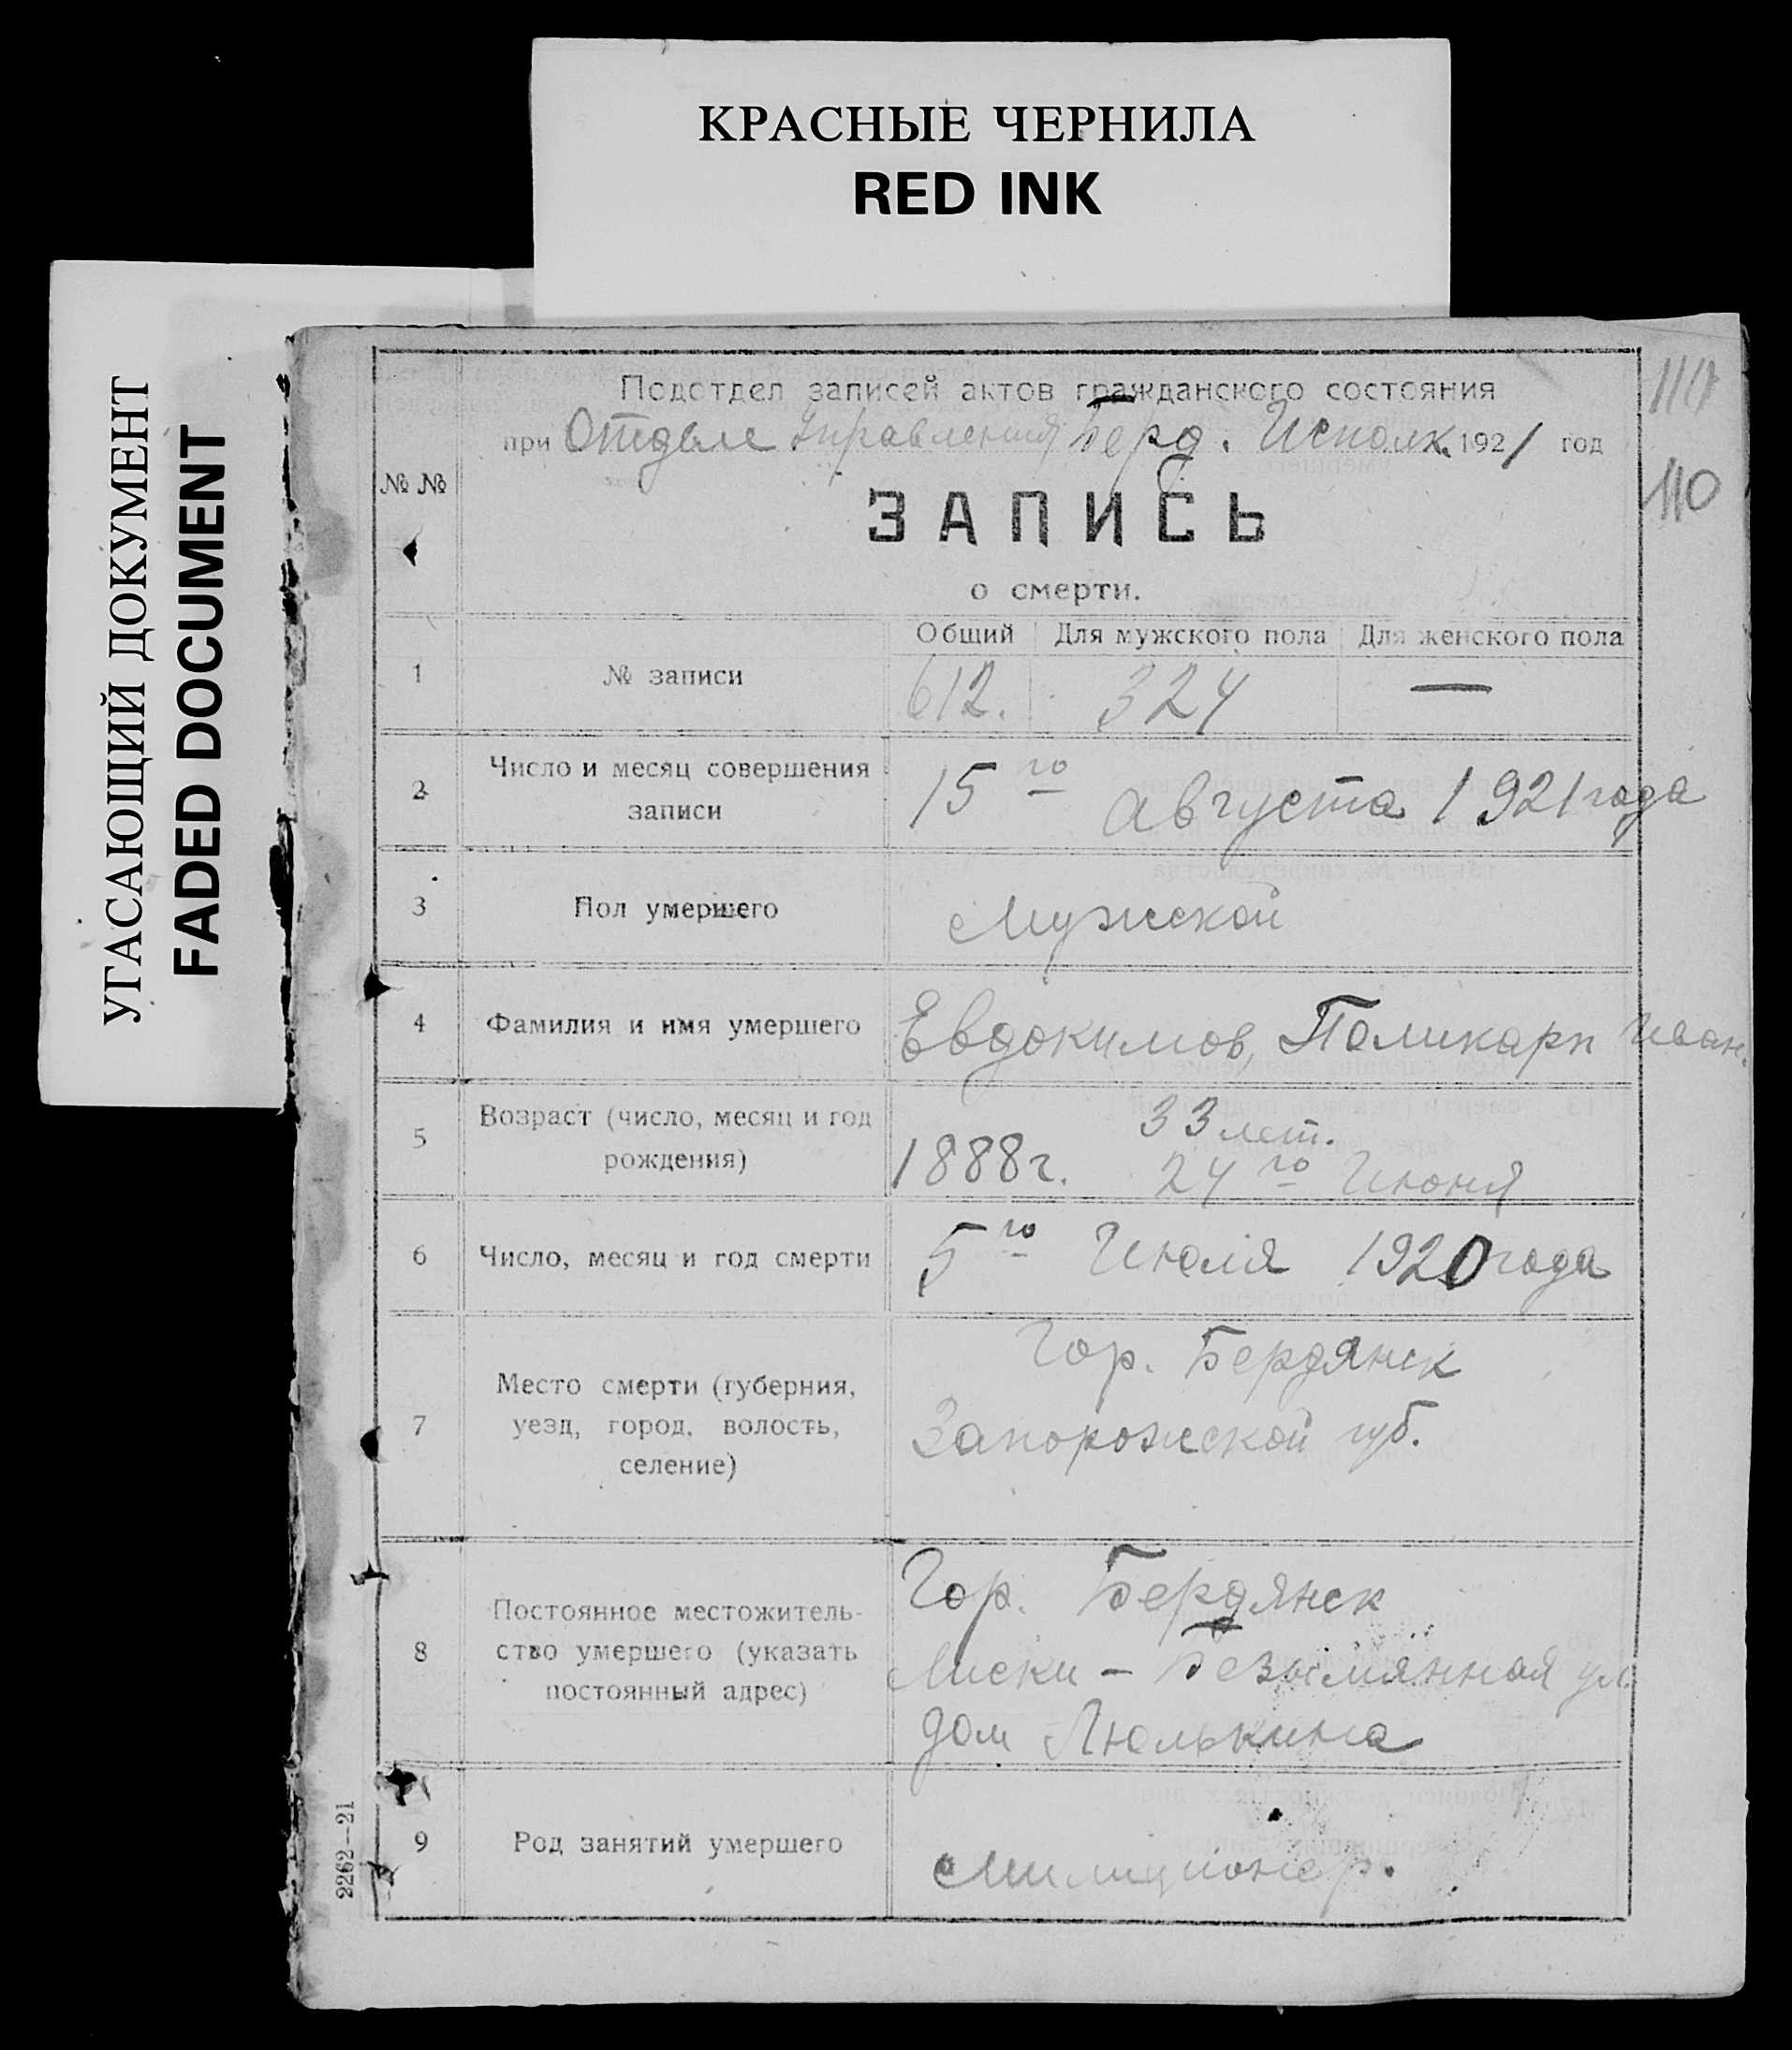 КРАСНЫЕ ЧЕРНИЛА
RED INK
УГАСАЮЩИЙ ДОКУМЕНТ
FADED DOCUMENT
Подотдел записей актов гражданского состояния
при Отделе Управления Берд. Исполк. 1921 год
110
№ №
ЗАПИСЬ
о смерти.
Общий Для мужского пола Для женского пола
1 № записи 612. 324 —
2 Число и месяц совершения записи 15го Августа 1921 года
3 Пол умершего Мужской
4 Фамилия и имя умершего Евдокимов, Поликарп Иван.
5 Возраст (число, месяц и год рождения) 33 лет.
1888г. 24го Июня
6 Число, месяц и год смерти 5го Июля 1920 года
7 Место смерти (губерния, уезд, город, волость, селение) Гор. Бердянск
Запорожской губ.
8 Постоянное местожитель-
ство умершего (указать
постоянный адрес)
Гор. Бердянск
Лиски – Безымянная ул.
дом Люлькина
9 Род занятий умершего Милиционер.
2262—21